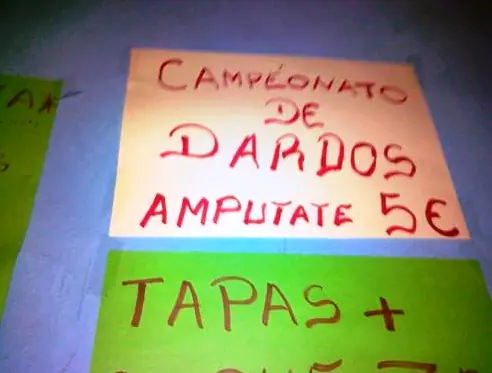 CAMPEONATO
DE
DARDOS
AMPUTATE 5€
TAPAS +